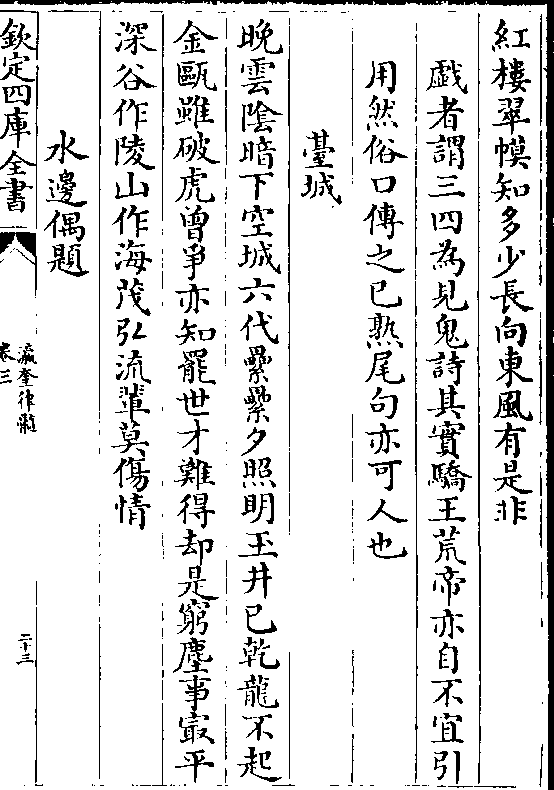 紅樓翠幙知多少長向東風有是非
戲者謂三四為見鬼詩其實驕王荒帝亦自不宜引
用然俗口傳之已熟尾句亦可人也
臺城
晚雲陰暗下空城六代纍纍夕照明玉井已乾龍不起
金甌雖破虎曾爭亦知罷世才難得却是窮塵事㝡平
深谷作陵山作海茂弘流輩莫傷情
水邊偶題
欽定四庫全書
瀛奎律髓
卷三
二十三